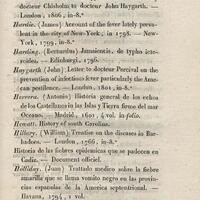 docteur Chisholm to docteur John Haygarth. —
London, 1806, in-8.º
Hardie. (James) Account of the fever lately prevalent in the city of New-York, in 1798. — New-York, 1799, in-8.º
Harding. (Bernardus) Jamaïcensis, de typho icteroïdes. — Edinburgi, 1796.
Haygarth (John) Letter to docteur Percival on the prevention of infectious fever particularly the American pestilence. — London, 1801, in-8.º
Herrera. (Antonio) Historia general de los echos de los Castellanos in las Islas y Tierra firme del mar Oceano. — Madrid, 1601, 4 vol. in folio.
Hewatt. History of south Carolina.
Hillary. (William) Treatise on the diseases in Barbadoes. — London, 1766, in-8.º
Historia de las fiebres epidemicas que se padecen en Cadiz. — Document officiel.
Holliday. (Juan) Trattado medico sobre la fiebre amarille que se llama vomito negro en las provincias españolas de la America septentrional. —
Havana, 1794, 1 vol.